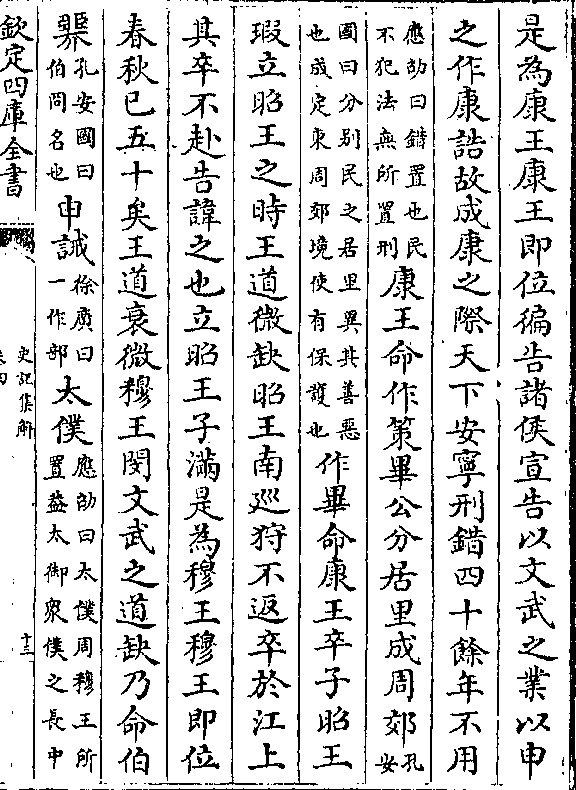 是為康王康王即位徧告諸侯宣告以文武之業以申
之作康誥故成康之際天下安寧刑錯四十餘年不用
應劭曰錯置也民
不犯法無所置刑
康王命作策畢公分居里成周郊
孔
安
國曰分别民之居里異其善惡
也成定東周郊境使有保護也
作畢命康王卒子昭王
瑕立昭王之時王道微缺昭王南巡狩不返卒於江上
其卒不赴告諱之也立昭王子滿是為穆王穆王即位
春秋已五十矣王道衰微穆王閔文武之道缺乃命伯
臩
孔安國曰
伯冏名也
申誡
徐廣曰
一作部
太僕
應劭曰太僕周穆王所
置葢太御衆僕之長中
欽定四庫全書
史記集解
卷四
十三